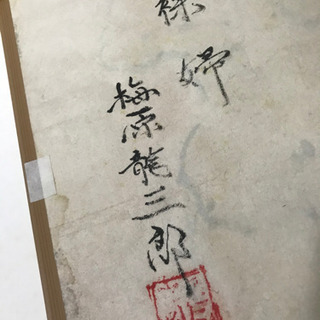 裸婦
梅原龍三郎